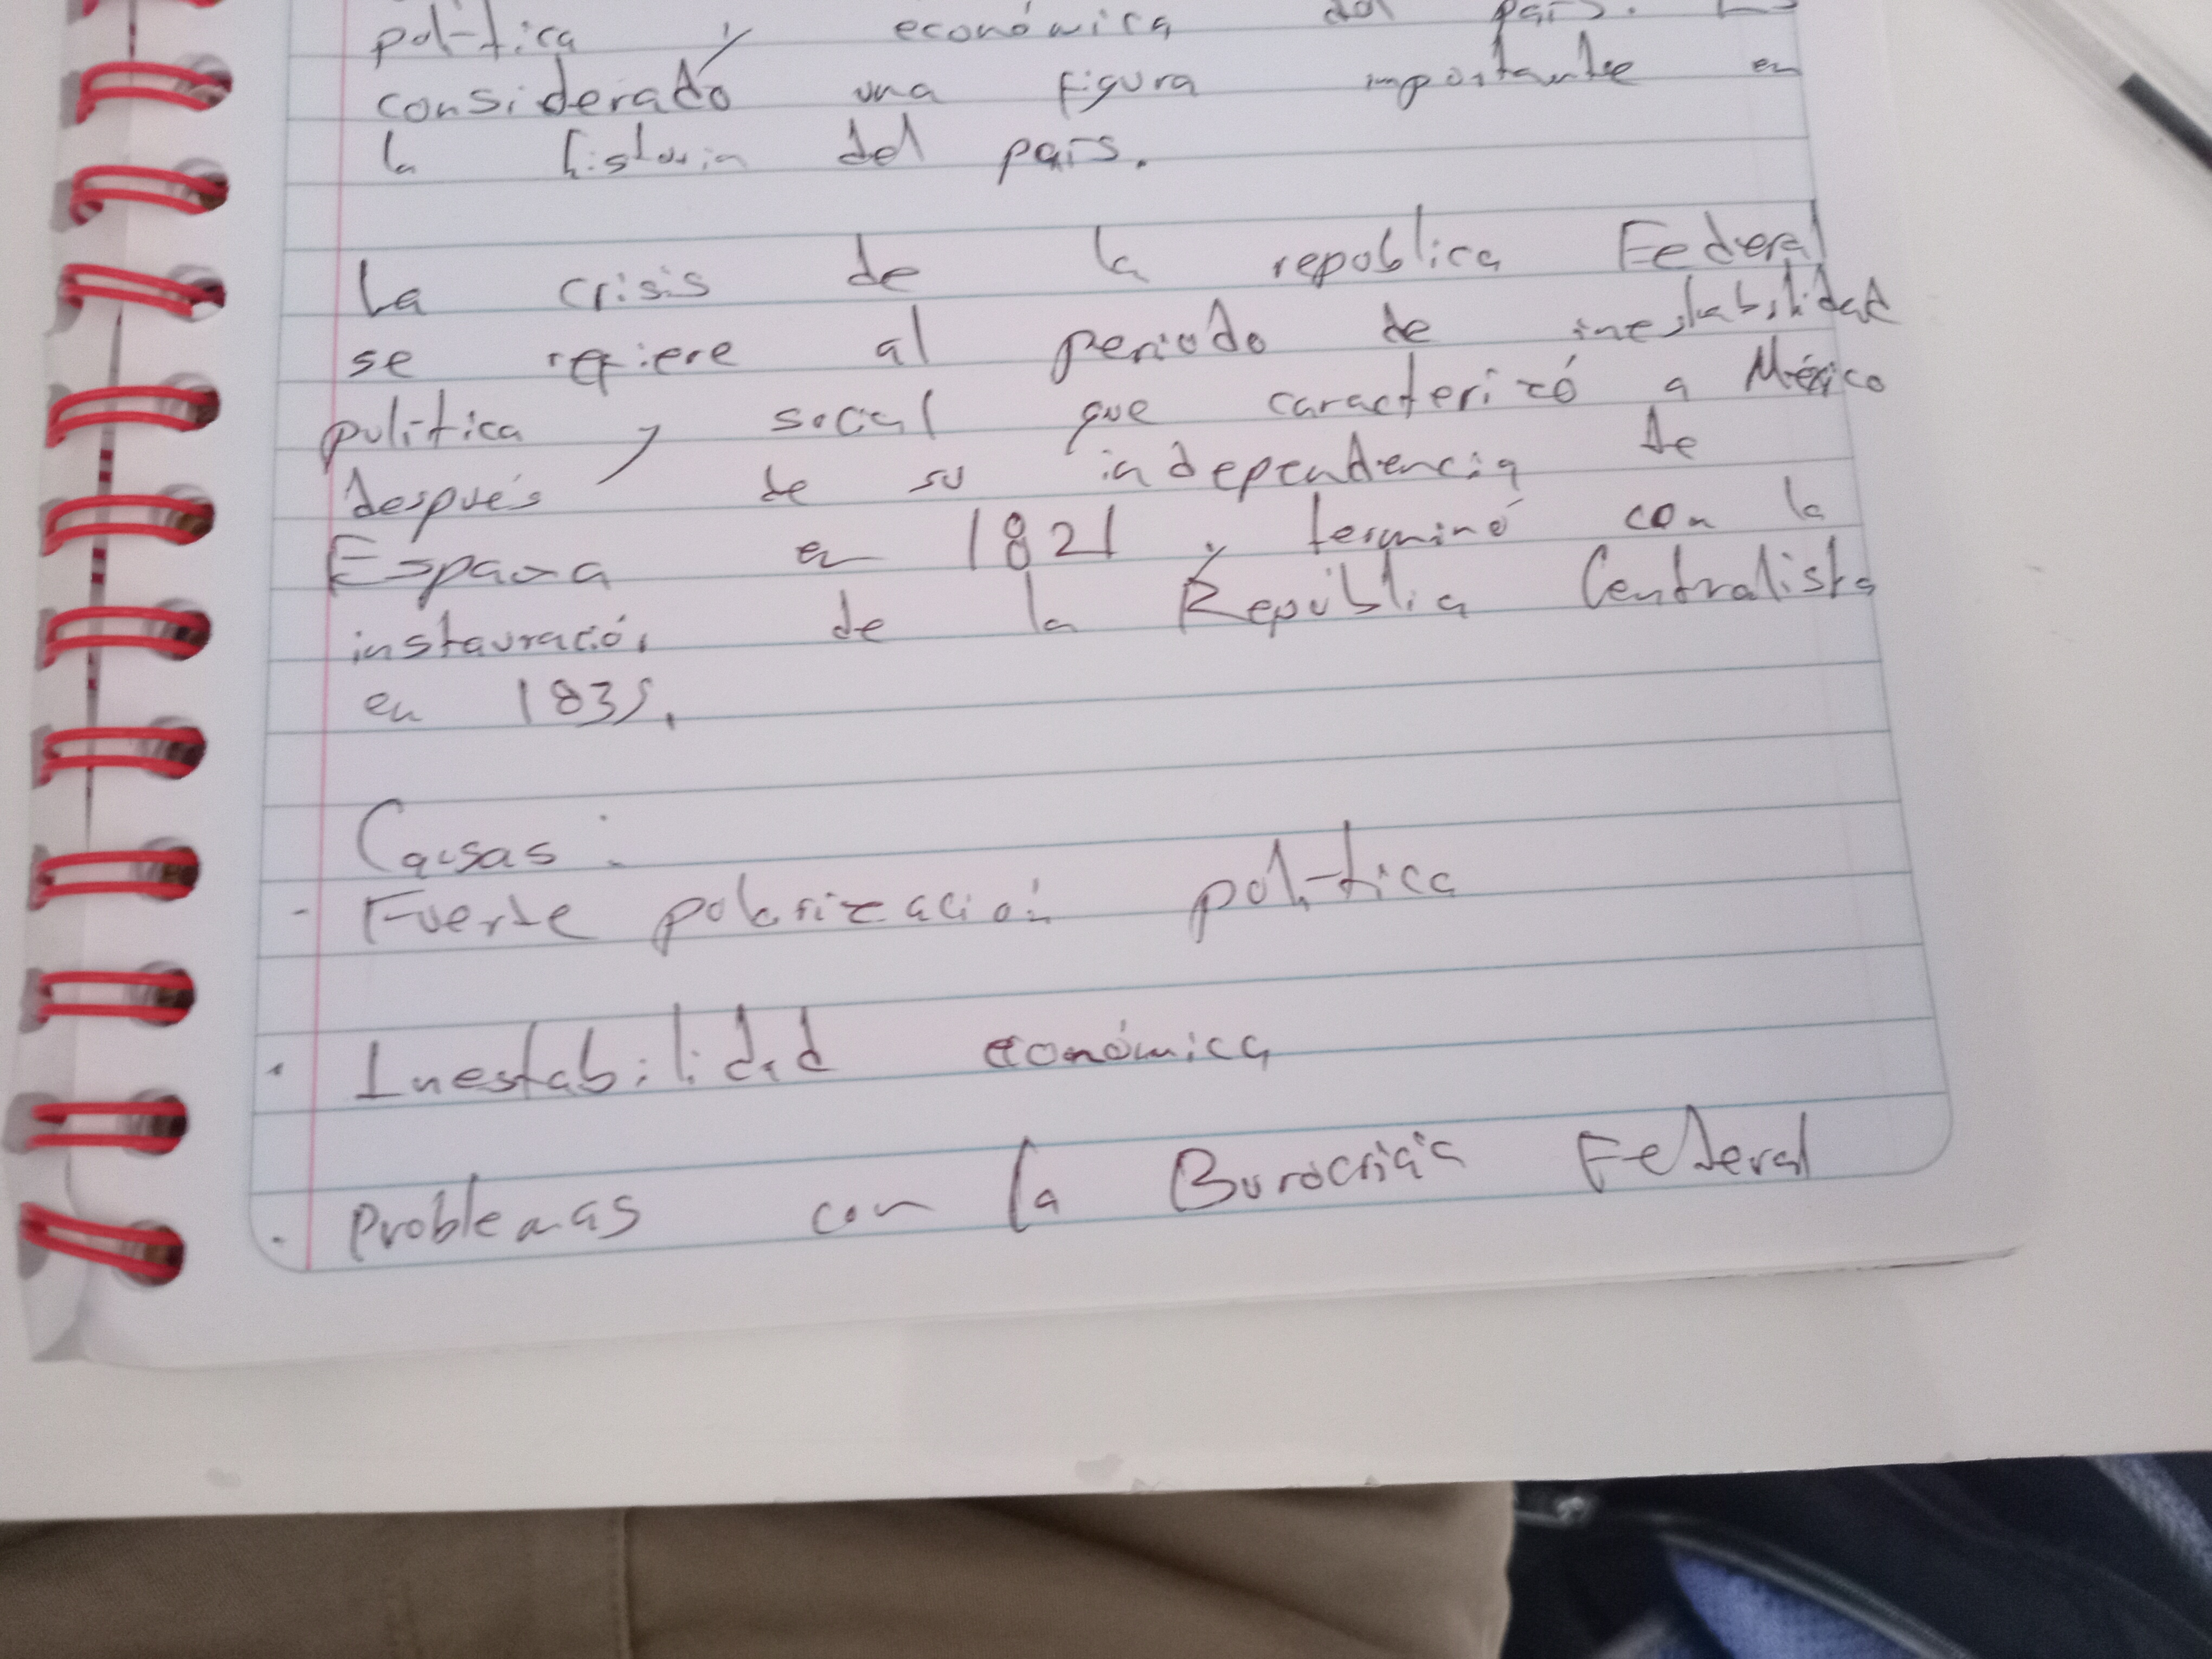 política y económica del país. Es
considerado una figura importante en
la historia del país.
La crisis de la republica Federal
se refiere al periodo de inestabilidad
política y social que caracterizó a México
después de su independencia de
España en 1821 y terminó con la
instauració. de la Repúblia Centralista
en 1835.
Causas:
- Fuerte polarización política
· Inestabilidad económica
· Problemas con la Federal